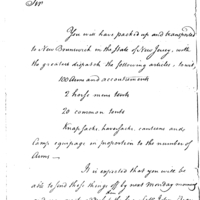 Sir
You will have packed up and transported
to New Brunswick in the State of New Jersey, with
the greatest dispatch the following articles, to wit,
100 Arms and accoutrements
2 horse mens tents
20 common tents
Knapsacks, haversacks, canteens and
Camp equipage in proportion to the number of
Arms —
It is expected that you will be
able to send these things off by next Monday morning